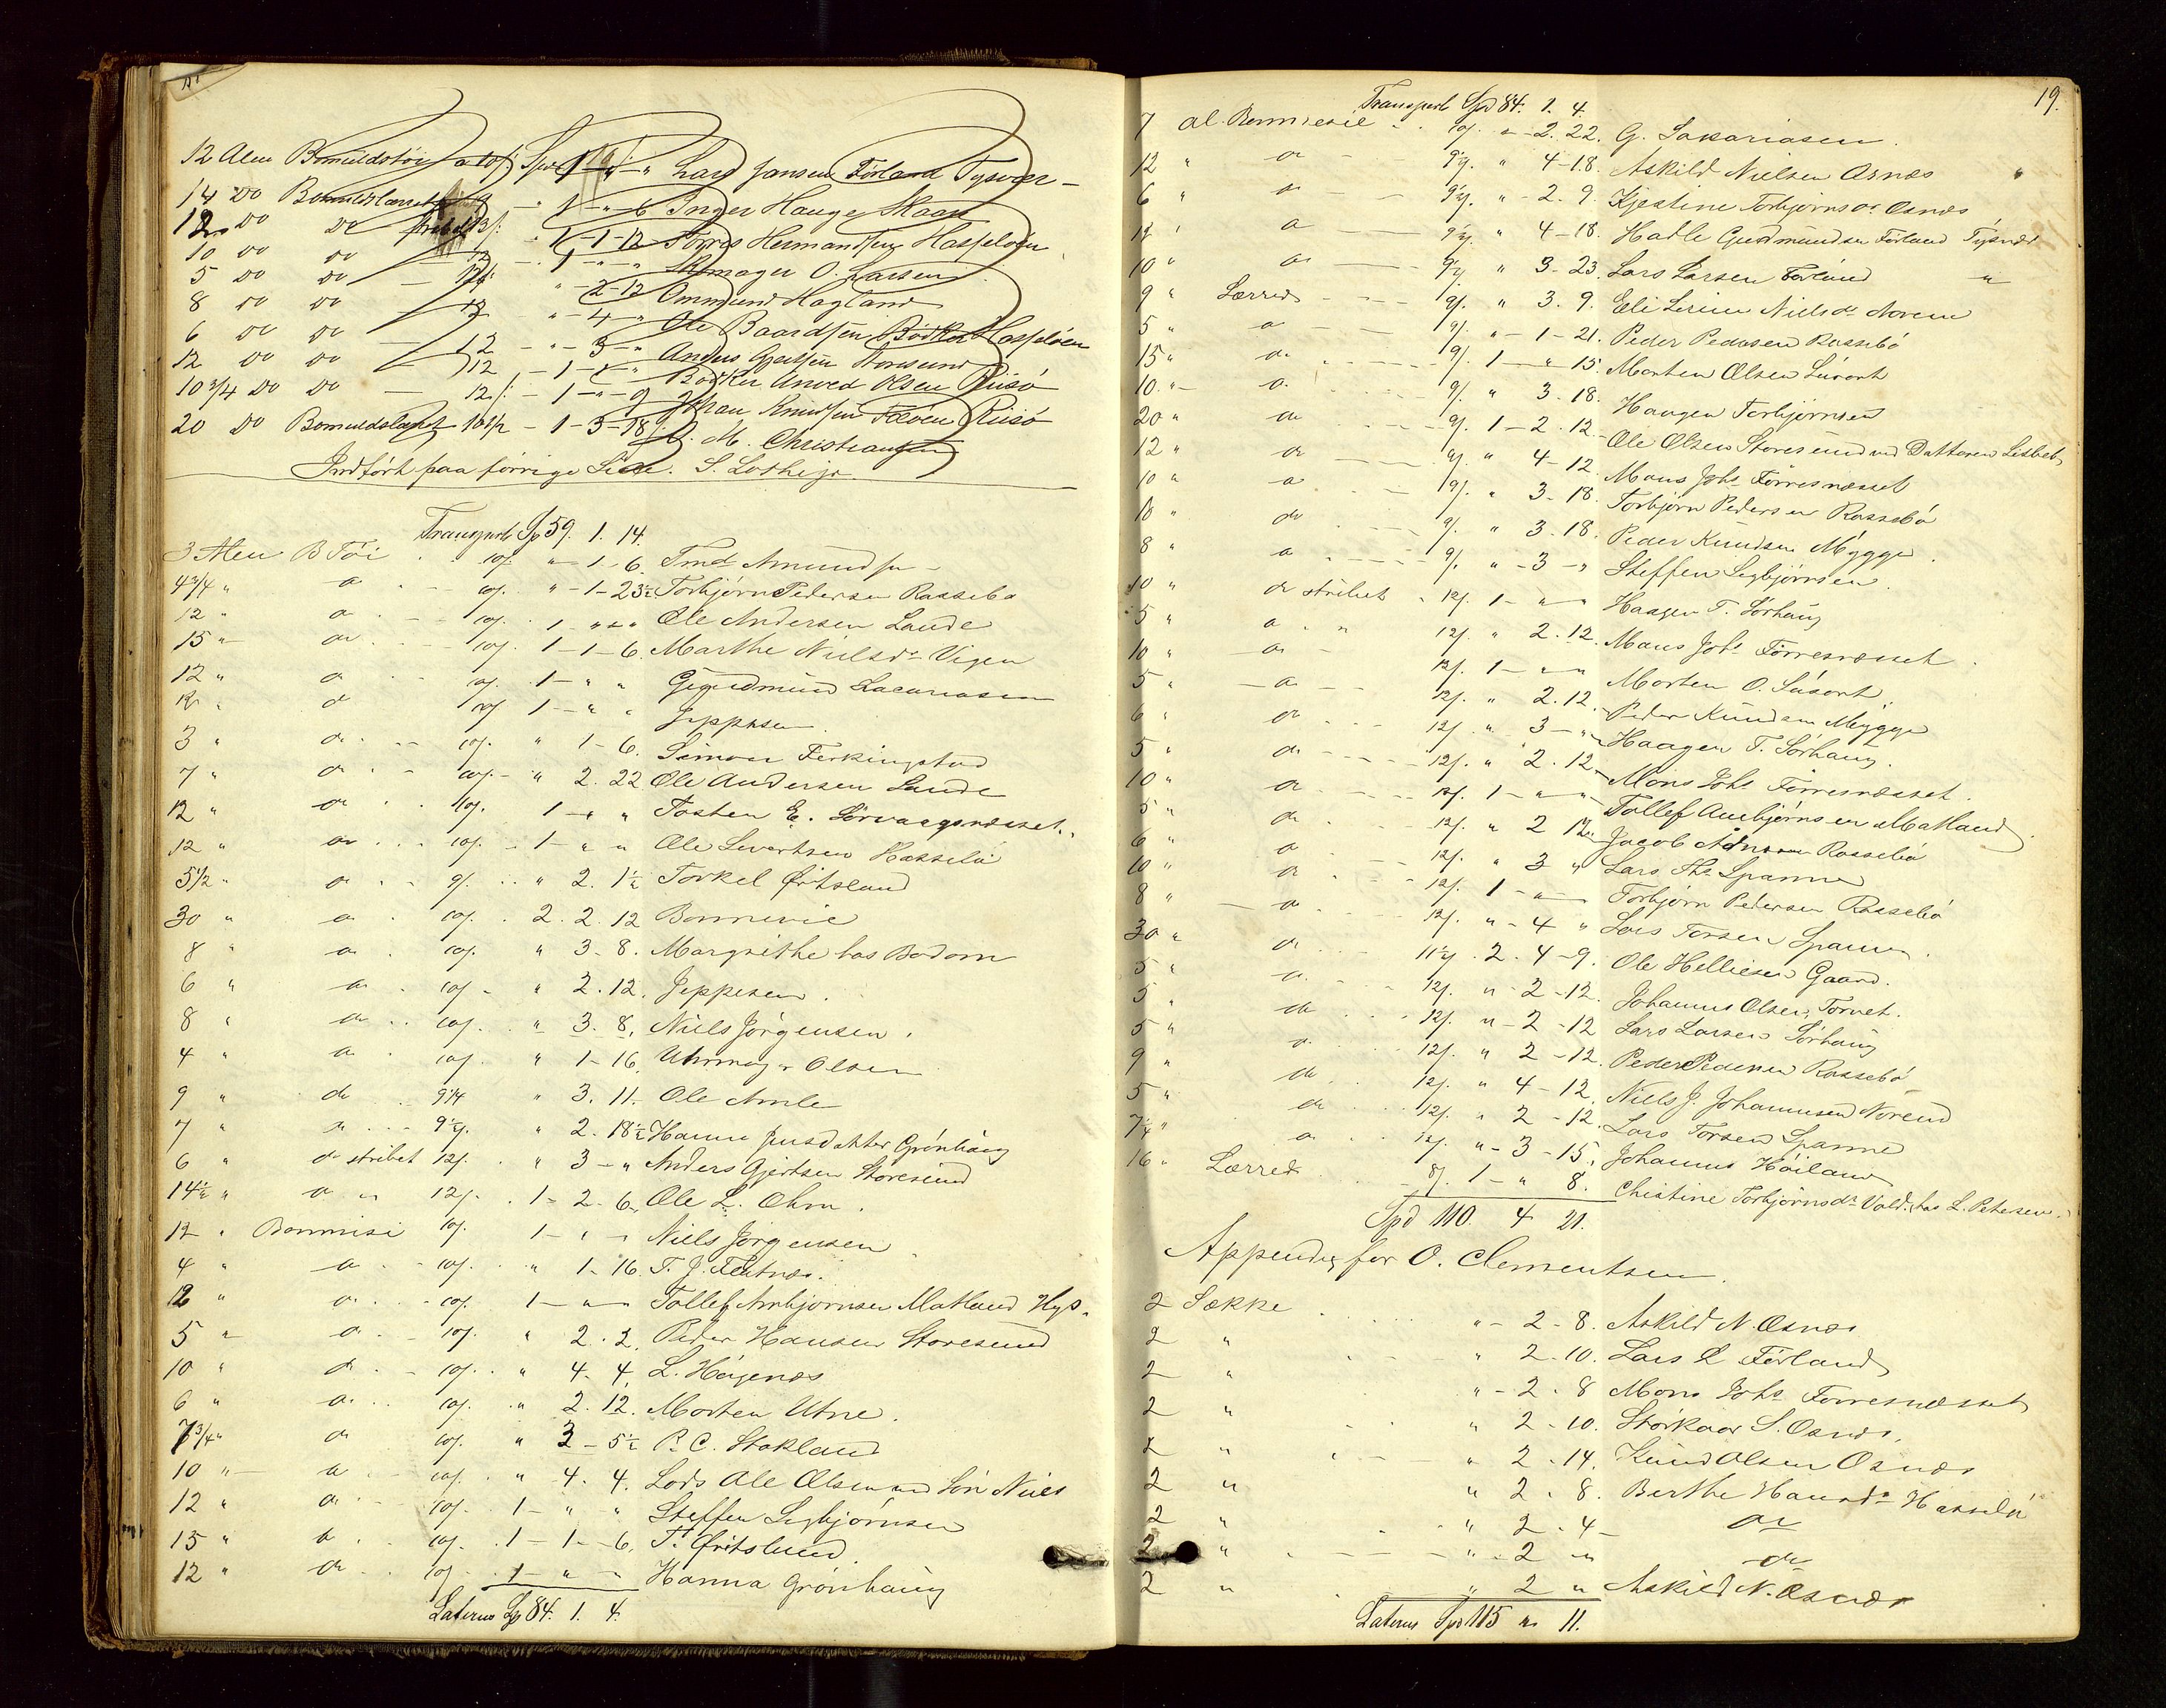 12 Alen Bomuldstöi a 10/: Spd 1 - " - " Lars Jansen Förland Tysvær -
14 Do Bomuldslærret - 1 - " - 6 Inger Hauge Skaar
12 Do Do stribet 13/: - 1 - 1 - 12 Törres Hermandsen Hasselöen
10 Do Do - 12 - 1 - " - " Skomager O. Larsen
5 Do Do - 12/: " - 2 - 12 Ommund Hagland
8 Do Do - 12 " - 4 - " Ole Baardsen Bödker Hasselöen
6 Do Do - 12 - " - 3 - " Anders Gjertsen Storesund
12 Do Do - 12 - 1 - " - " Bödker Anved Olsen Risö
10 3/4 Do Do - 12/: - 1 - " - 9 Johan Knudsen Fæöen Risö
20 Do Bomuldslærret 10 1/2 - 1 - 3 - 18 M. Christiansen
Indfört paa förrige Side. S. Lothe jr.
Transport Sp 59. 1. 14.
3 Alen B Töi 10/. " 1 - 6. Tmd Amundsen
4 3/4 " do 10/. " - 1 - 23 1/2 Torbjörn Pedersen Rassebö
12 " do 10/. 1 " " Ole Andersen Lande
15 " do 10/. 1 - 1 - 6. Marthe Nielsdr Vigen
12 " do 10/. 1 - " " Gudmund Zacariasen
12 " do 10/. 1 - " " Jeppesen
3 " do 10/. " 1 - 6. Simon Ferkingstad
7 " do 10/. - " 2. 22 Ole Andersen Lande
12 " do 10/. 1 - " " Tosten E. Sörvaagsnæsset.
12 " do 10/. 1 - " " Ole Sivertsen Hasselö
5 1/2 " do 9/. " 2. 1 1/2 Torkel Öritsland
30 " do 10/. 2. 2. 12 Bonnevie
8 " do 10/. " 3. 8. Margrethe hos Bodom
6 " do 10/. " 2. 12. Jeppesen.
8 " do 10/. " 3. 8. Niels Jörgensen.
4 " do 10/. " 1 - 16. Uhrmagr Olsen
9 " do 9 1/4 " 3. 11. Ole Amle
7 " do 9 1/2/. " 2. 18 1/2 Hanna Jensdatter Grönhaug
6 " do stribet 12/. " 3 - " Anders Gjertsen Storesund
14 1/2 " do " 12/. 1 - 2 - 6. Ole L. Ohm.
12 " Bommisi 10/. 1 - " - " Niels Jörgensen
4 " do 10/. " 1 - 16. T. J. Fedtnæs.
12 " do 10/. 1 - " - " Tollef Ambjornsen Matland Hys.
5 " do 10/. " 2. 2. Peder Hansen Storesund
10 " do 10/. " 4. 4. L. Höjenes
6 " do 10/. " 2. 12. Morten Utne.
7 3/4 " do 10/. " 3 - 5 1/2 P. C. Stokland
10 " do 10/. " 4. 4. Lods Ole Olsen ved Sön Niels
12 " do 10/. 1 - " " Steffen Sigbjörnsen
15 " do 10/. 1 - 1 - 6. T. Öritsland.
12 " do 10/. 1 - " - " Hanna Grönhaug
Laterus Sp 84. 1. 4.
19.
Transport Spd 84. 1. 4.
7 al. Bommesie 10/. " - 2. 22. G. Sakariasen.
12 " do 9 1/2/. " 4 - 18. Askild Nielsen Osnæs "
6 " do 9 1/2/. " - 2. 9. Kjestine Torbjörnsdr Osnæs
12 " do 9 1/2/. " 4 - 18. Hadle Gudmundsen Förland Tysvær
10 " do 9 1/2/. " 3 - 23. Lars Larsen Förland "
9 " Lærred 9/. " 3. 9. Eli Serine Nielsdr Norem
5 " do 9/. " - 1 - 21. Peder Pedersen Rassebö
15 " do 9/. 1 - " 15. Morten Olsen Susort
10 " do 9/. " 3. 18. Haagen Torbjörnsen
20 " do 9/. 1 - 2. 12. Ole Olsen Storesund ved Datteren Lisbeth
12 " do 9/. " 4 - 12. Mons Johs Förresnæsset
10 " do 9/. " 3 - 18. Torbjörn Pedersen Rassebö
10 " do 9/. " 3. 18. Peder Knudsen Mygge.
8 " do 9/. " - 3 - " Steffen Sigbjörnsen.
10 " do stribet 12/. 1 - " - " Haagen T. Sörhaug
5 " do " 12/. " 2. 12. Mons Johs Förresnæsset.
10 " do 12/. 1 - " - " Morten O. Susort
5 " do 12/. " 2. 12. Peder Knudsen Mygge
6 " do 12/. " 3 - " Haagen T. Sörhaug.
5 " do 12/. " 2. 12. Mons Johs Förresnæsset.
10 " do 12/. 1 - " - " Tollef Ambjörnsen Matland.
5 " do 12/. " 2 12. Jacob Rassebö
6 " do 12/. " 3 " Lars Ths Spanne
10 " do 12/. 1 - " - Torbjörn Pedersen Rassebö
8 " do 12/. " - 4 " Lars Torsen Spanne.
30 " do 11 1/2/. 2. 4 - 9. Ole Helliesen Gaard.
5 " do 12/. " - 2 - 12. Johannes Olsen Torvet.
5 " do 12/. " - 2 - 12 Lars Larsen Sörhaug
5 " do 12/. " 2 - 12. Peder Pedersen Rassebö
9 " do 12/. " 4 - 12. Niels J. Johannesen Norend
5 " do 12/. " 2 - 12. Lars Torsen Spanne
7 1/4 " do 12/. " - 3 - 15. Johannes Höiland
16 " Lærred 8/. 1 - " 8. Christine Torbjörnsdr Vold. hos L. Petersen.
Spd 110. 4 21.
Appendix for O. Clementsen.
2 Sække " - 2 - 8. Askild N. Osnæs
2 " " 2 - 10. Lars L Förland
2 " " - 2 - 8 Mons Johs Förresnæsset
2 " " 2 - 10. Storkaar S. Osnæs.
2 " " 2 - 14. Knud Olsen Osnæs
2 " " 2 - 8. Berthe Hansdr Hasselö
2 " " 2 - 4 - do
2 " " - 2 " do
2 " " 2 " Askild N. Osnæs
Laterus Spd 115 " 11.